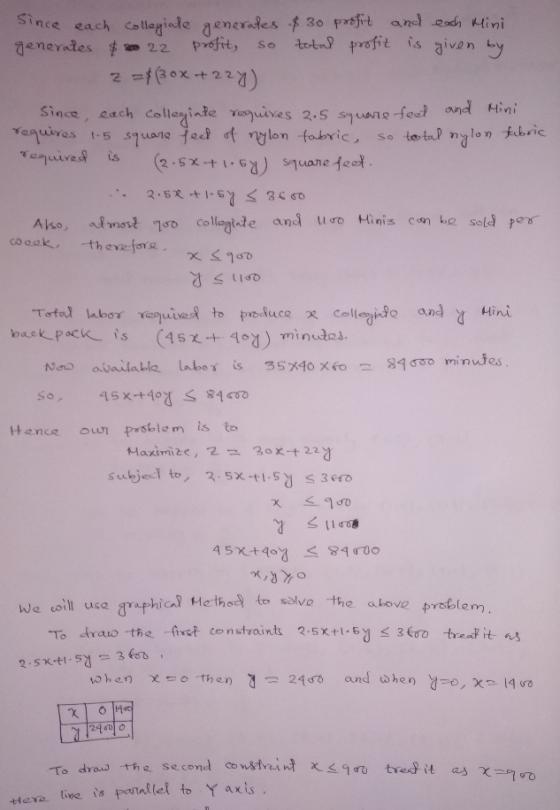 Since each collegiate generates $ 30 profit and each Mini
generates $ 22 profit, so total profit is given by
z = $(30x + 22y)
Since, each collegiate requires 2.5 square feet and Mini
requires 1.5 square feet of nylon fabric, so total nylon fabric
required is (2.5x + 1.5y) square feet.
∴ 2.5x + 1.5y ≤ 3600
Also, atmost 900 collegiate and 1100 Minis can be sold per
week, therefore.
x ≤ 900
y ≤ 1100
Total labor required to produce x collegiate and y Mini
back pack is (45x + 40y) minutes.
Now available labor is 35x40x60 = 84000 minutes.
so, 45x+40y ≤ 84000
Hence our problem is to
Maximize, z = 30x + 22y
subject to, 2.5x+1.5y ≤ 3600
x ≤ 900
y ≤ 1100
45x+40y ≤ 84000
x,y ≥ 0
We will use graphical Method to solve the above problem.
To draw the first constraints 2.5x+1.5y ≤ 3600 treat it as
2.5x+1.5y = 3600.
When x=0 then y = 2400 and when y=0, x=1400
x 0 1400
y 2400 0
To draw the second constraint x ≤ 900 treat it as x=900
Here line is parallel to Y axis.